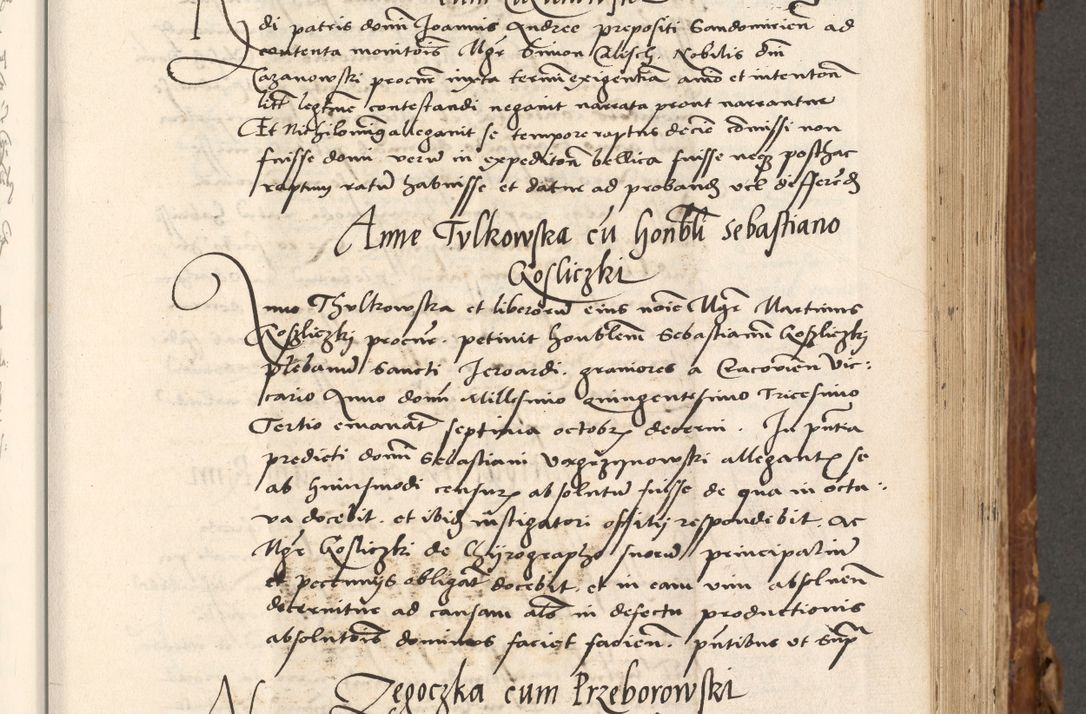 di patris domi Joannis Andree prepositi Sandomirien ad
contenta monitois Mgr Simon Calisch. Nobilis dni
Cazanowski procur iuxta termi exigentiam anno et intenton
litt legtime contestandi negavit narrata prout narrantur
Et Nichilominus allegavit se tempore raptus decie comissi non
fuisse domi verum in expeditom bellica fuisse neque posthac
raptum ratum habuisse et datur ad proband vel differend
Anne Tylkowska cum honbli Sebastiano
Gosliczki
Anno Thylkowska et liberorum eius noie Mgr Martinus
Goszliczkj procur. petivit honblem Sebastianum Goszliczkj
plebanum Sancti Jeroardi. graviores a Cracovien Vic:
cario Anno domi Millesimo quingentesimo Tricesimo
Tertio emanat septima octobr decerni. In pntia
predicti domi Sebastiani allegant se
ab huiusmodi censur absolutum fuisse de qua in octa:
va docebit. et ibidem instigatori offitij respondebit. Ac
Mgr Gosliczki de Chyrographo suorum principalium
et pecuniis obligat docebit. et in eam vim absoluen
decernitur ad causam als in defectu productionis
absolutois dominus faciet facien. pntibus ut Supra
Zegoczka cum Przeborowski